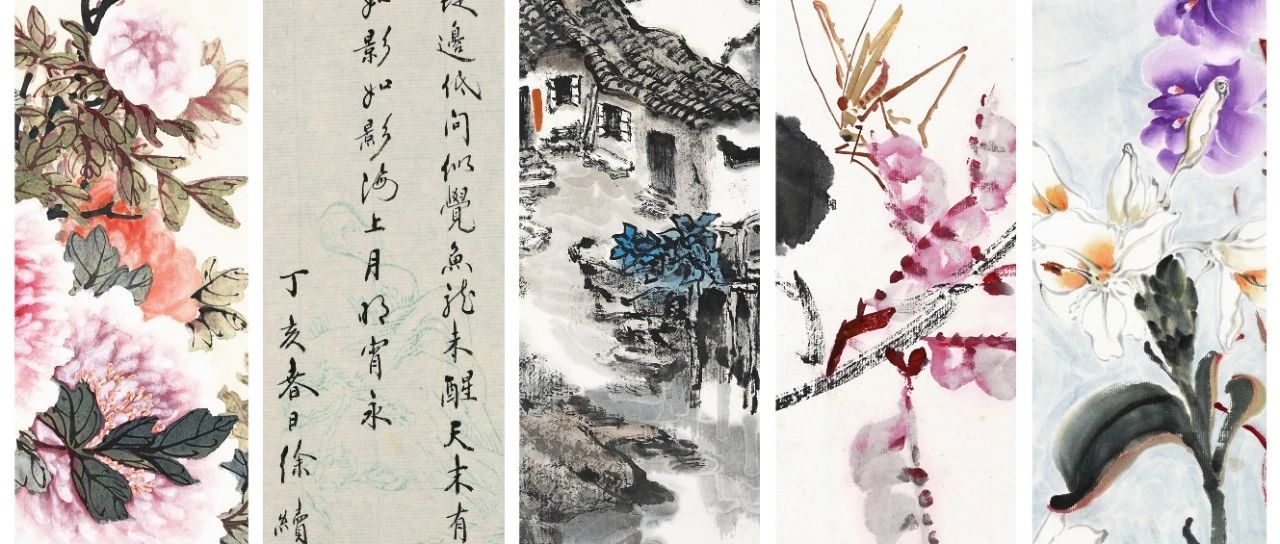 邊低问似覺魚龍未醒天未有
影如影海上月明宵永
丁亥春日徐續